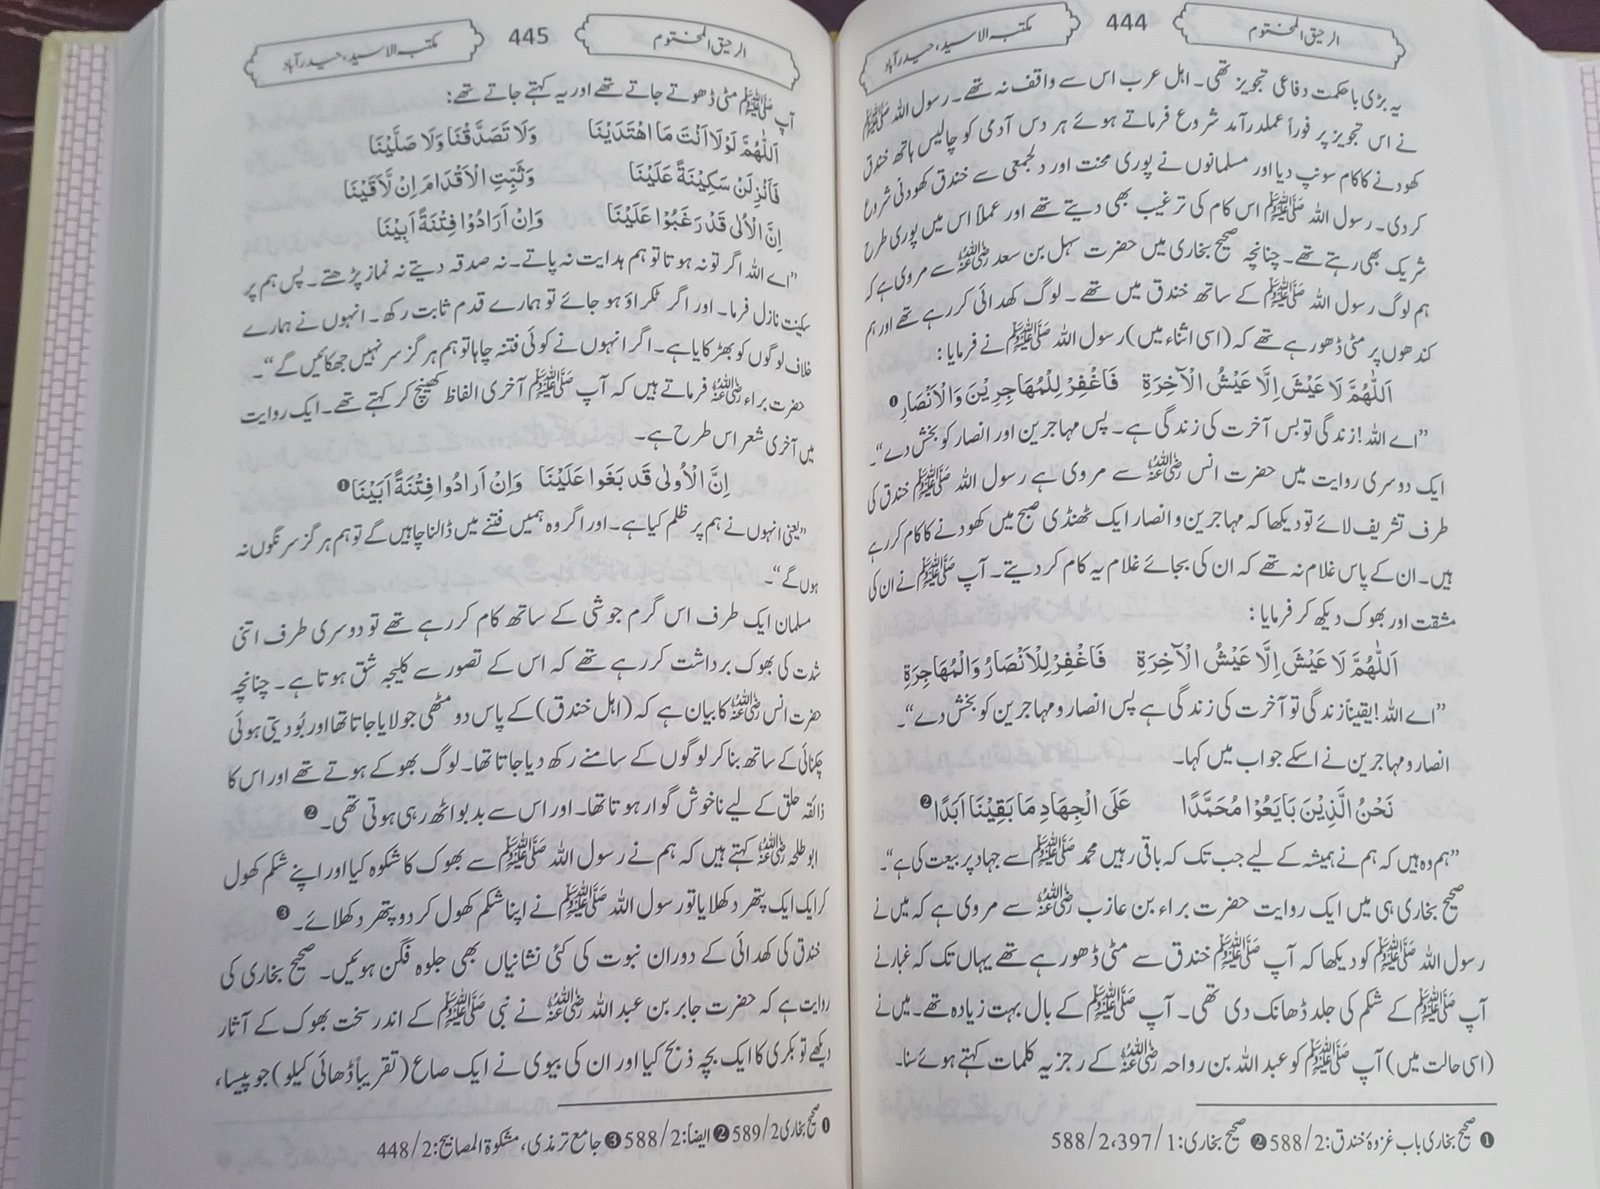 الرحیق المختوم 444 مکتبہ الاسید، حیدرآباد
یہ بڑی باحکمت دفاعی تجویز تھی۔ اہل عرب اس سے واقف نہ تھے۔ رسول اللہ ﷺ
نے اس تجویز پر فوراً عملدرآمد شروع فرماتے ہوئے ہر دس آدمی کو چالیس ہاتھ خندق
کھودنے کا کام سونپ دیا اور مسلمانوں نے پوری محنت اور دلجمعی سے خندق کھودنی شروع
کردی۔ رسول اللہ ﷺ اس کام کی ترغیب بھی دیتے تھے اور عملاً اس میں پوری طرح
شریک بھی رہتے تھے۔ چنانچہ صحیح بخاری میں حضرت سہل بن سعد رضی اللہ عنہ سے مروی ہے کہ
ہم لوگ رسول اللہ ﷺ کے ساتھ خندق میں تھے۔ لوگ کھدائی کر رہے تھے اور ہم
کندھوں پر مٹی ڈھو رہے تھے کہ (اسی اثناء میں) رسول اللہ ﷺ نے فرمایا:
اَللّٰهُمَّ لَا عَيْشَ اِلَّا عَيْشُ الْآخِرَةِ فَاغْفِرْ لِلْمُهَاجِرِيْنَ وَالْاَنْصَارِ ❶
”اے اللہ! زندگی تو بس آخرت کی زندگی ہے۔ پس مہاجرین اور انصار کو بخش دے“۔
ایک دوسری روایت میں حضرت انس رضی اللہ عنہ سے مروی ہے رسول اللہ ﷺ خندق کی
طرف تشریف لائے تو دیکھا کہ مہاجرین و انصار ایک ٹھنڈی صبح میں کھودنے کا کام کر رہے
ہیں۔ ان کے پاس غلام نہ تھے کہ ان کی بجائے غلام یہ کام کر دیتے۔ آپ ﷺ نے ان کی
مشقت اور بھوک دیکھ کر فرمایا:
اَللّٰهُمَّ لَا عَيْشَ اِلَّا عَيْشُ الْآخِرَةِ فَاغْفِرْ لِلْاَنْصَارُ وَالْمُهَاجِرَةِ
”اے اللہ! یقیناً زندگی تو آخرت کی زندگی ہے پس انصار و مہاجرین کو بخش دے“۔
انصار و مہاجرین نے اسکے جواب میں کہا۔
نَحْنُ الَّذِيْنَ بَايَعُوْا مُحَمَّدًا عَلَى الْجِهَادِ مَا بَقِيْنَا اَبَدًا ❷
”ہم وہ ہیں کہ ہم نے ہمیشہ کے لیے جب تک کہ باقی رہیں محمد ﷺ سے جہاد پر بیعت کی ہے“۔
صحیح بخاری ہی میں ایک روایت حضرت براء بن عازب رضی اللہ عنہ سے مروی ہے کہ میں نے
رسول اللہ ﷺ کو دیکھا کہ آپ ﷺ خندق سے مٹی ڈھو رہے تھے یہاں تک کہ غبار نے
آپ ﷺ کے شکم کی جلد ڈھانک دی تھی۔ آپ ﷺ کے بال بہت زیادہ تھے۔ میں نے
(اسی حالت میں) آپ ﷺ کو عبد اللہ بن رواحہ رضی اللہ عنہ کے رجزیہ کلمات کہتے ہوئے سنا۔
❶ صحیح بخاری باب غزوۂ خندق: 588/2 ❷ صحیح بخاری: 588/2،397/1
الرحیق المختوم 445 مکتبہ الاسید، حیدرآباد
آپ ﷺ مٹی ڈھوتے جاتے تھے اور یہ کہتے جاتے تھے:
اَللّٰهُمَّ لَوْلَا اَنْتَ مَا اهْتَدَيْنَا وَلَا تَصَدَّقْنَا وَلَا صَلَّيْنَا
فَاَنْزِلَنْ سَكِيْنَةً عَلَيْنَا وَثَبِّتِ الْاَقْدَامَ اِنْ لَّاقَيْنَا
اِنَّ الْاُلٰى قَدْ رَغَبُوْا عَلَيْنَا وَاِنْ اَرَادُوْا فِتْنَةً اَبَيْنَا
”اے اللہ اگر تو نہ ہوتا تو ہم ہدایت نہ پاتے۔ نہ صدقہ دیتے نہ نماز پڑھتے۔ پس ہم پر
سکینت نازل فرما۔ اور اگر ٹکراؤ ہو جائے تو ہمارے قدم ثابت رکھ۔ انہوں نے ہمارے
خلاف لوگوں کو بھڑکایا ہے۔ اگر انہوں نے کوئی فتنہ چاہا تو ہم ہرگز سر نہیں جھکائیں گے“۔
حضرت براء رضی اللہ عنہ فرماتے ہیں کہ آپ ﷺ آخری الفاظ کھینچ کر کہتے تھے۔ ایک روایت
میں آخری شعر اس طرح ہے۔
اِنَّ الْاُولٰى قَد بَغَوا عَلَيْنَا وَاِنْ اَرادُوا فِتْنَةً اَبَيْنَا ❶
”یعنی انہوں نے ہم پر ظلم کیا ہے۔ اور اگر وہ ہمیں فتنے میں ڈالنا چاہیں گے تو ہم ہرگز سرنگوں نہ
ہوں گے“۔
مسلمان ایک طرف اس گرم جوشی کے ساتھ کام کر رہے تھے تو دوسری طرف اتنی
شدت کی بھوک برداشت کر رہے تھے کہ اس کے تصور سے کلیجہ شق ہوتا ہے۔ چنانچہ
حضرت انس رضی اللہ عنہ کا بیان ہے کہ (اہل خندق) کے پاس دو مٹھی جو لایا جاتا تھا اور بُو دیتی ہوئی
چکنائی کے ساتھ بنا کر لوگوں کے سامنے رکھ دیا جاتا تھا۔ لوگ بھوکے ہوتے تھے اور اس کا
ذائقہ حلق کے لیے ناخوش گوار ہوتا تھا۔ اور اس سے بدبو اٹھ رہی ہوتی تھی۔ ❷
ابو طلحہ رضی اللہ عنہ کہتے ہیں کہ ہم نے رسول اللہ ﷺ سے بھوک کا شکوہ کیا اور اپنے شکم کھول
کر ایک ایک پتھر دکھلایا تو رسول اللہ ﷺ نے اپنا شکم کھول کر دو پتھر دکھلائے۔ ❸
خندق کی کھدائی کے دوران نبوت کی کئی نشانیاں بھی جلوہ فگن ہوئیں۔ صحیح بخاری کی
روایت ہے کہ حضرت جابر بن عبد اللہ رضی اللہ عنہ نے نبی ﷺ کے اندر سخت بھوک کے آثار
دیکھے تو بکری کا ایک بچہ ذبح کیا اور ان کی بیوی نے ایک صاع (تقریباً ڈھائی کیلو) جو پیسا،
❶ صحیح بخاری 589/2 ❷ ایضاً: 588/2 ❸ جامع ترمذی، مشکوۃ المصابیح: 448/2